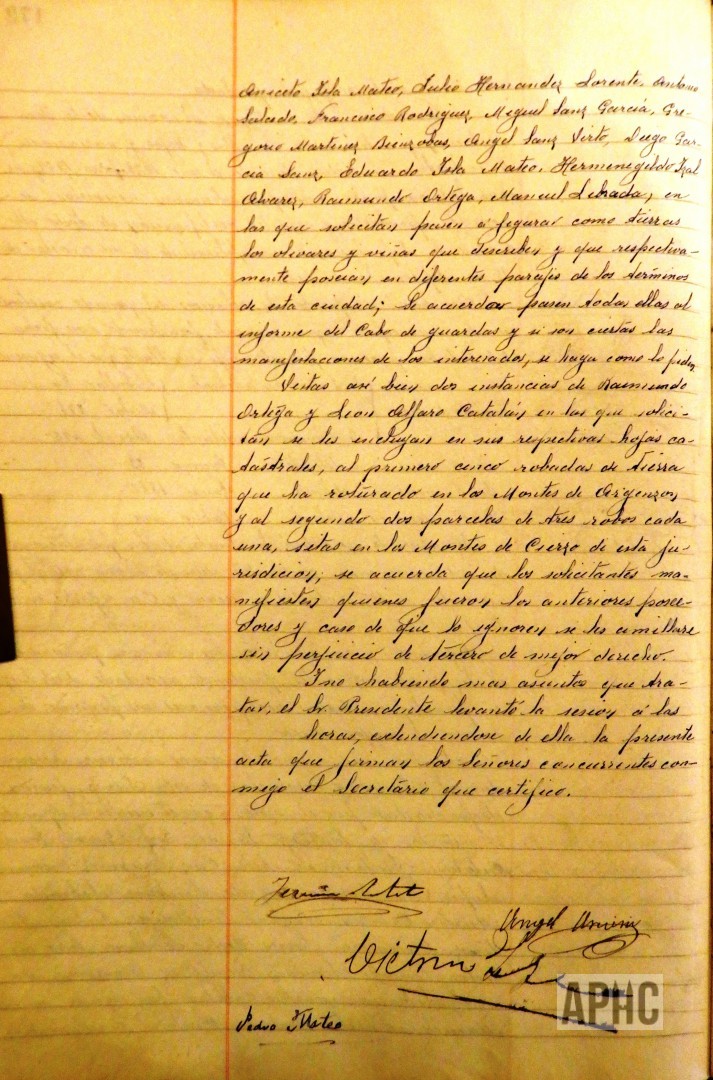 Aniceto Isla Mateo, Julio Hernandez Lorente, Antonio
Salcedo, Francisco Rodriguez, Miguel Sanz García, Gre-
gorio Martinez Bienzobas, Angel Sanz Virto, Diego Gar-
cia Sanz, Eduardo Isla Mateo, Hermenegildo Izal
Alvarez, Raimundo Ortega, Manuel Librada, en
las que solicitan pasen á figurar como tierras
los olivares y viñas que describen y que respectiva-
mente poseian en diferentes parajes de los términos
de esta ciudad; Se acuerda pasen todas ellas al
informe del Cabo de guardas y si son ciertas las
manifestaciones de los interesados, se haga como lo piden
Vistas asi bien dos instancias de Raimundo
Ortega y Leon Alfaro Catalán en las que solici-
tan se les incluyan en sus respectivas hojas ca-
tastrales, al primero cinco robadas de tierra
que ha roturado en los Montes de Argenzon
y al segundo dos parcelas de tres robos cada
una, sitas en los Montes de Cierzo de esta ju-
risdicion; se acuerda que los solicitantes ma-
nifiesten quienes fueron los anteriores posee-
dores y caso de que lo ignoren se les amillare
sin perjuicio de tercero de mejor derecho.
Y no habiendo mas asuntos que tra-
tar, el Sr. Presidente levantó la sesion á las
horas, extendiendose de ella la presente
acta que firman los Señores concurrentes con-
migo el Secretario que certifico.
Angel
Victor
APHC
Pedro Mateo